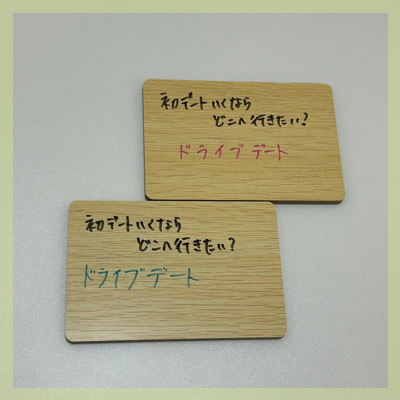 初デートいくなら
どこへ行きたい?
ドライブデート
初デートいくなら
どこへ行きたい?
ドライブデート